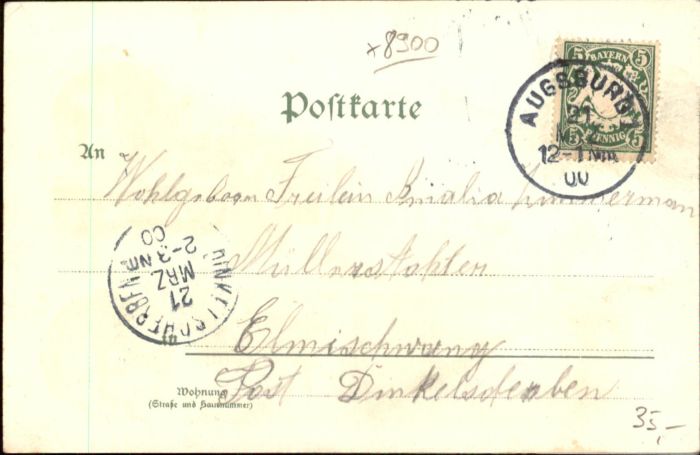 x 8900
5 BAYERN 5
5 PFENNIG 5
AUGSBURG 1
21
MRZ
12-1 NM
00
Postkarte
An
Wohlgeboren Freilein Amalia Zimmerman
Müllerstochter
Elmischwang
Post Dinkelscherben
DINKELSCHERBEN
21
MRZ
2-3 NM
00
Wohnung
(Straße und Hausnummer)
35,-